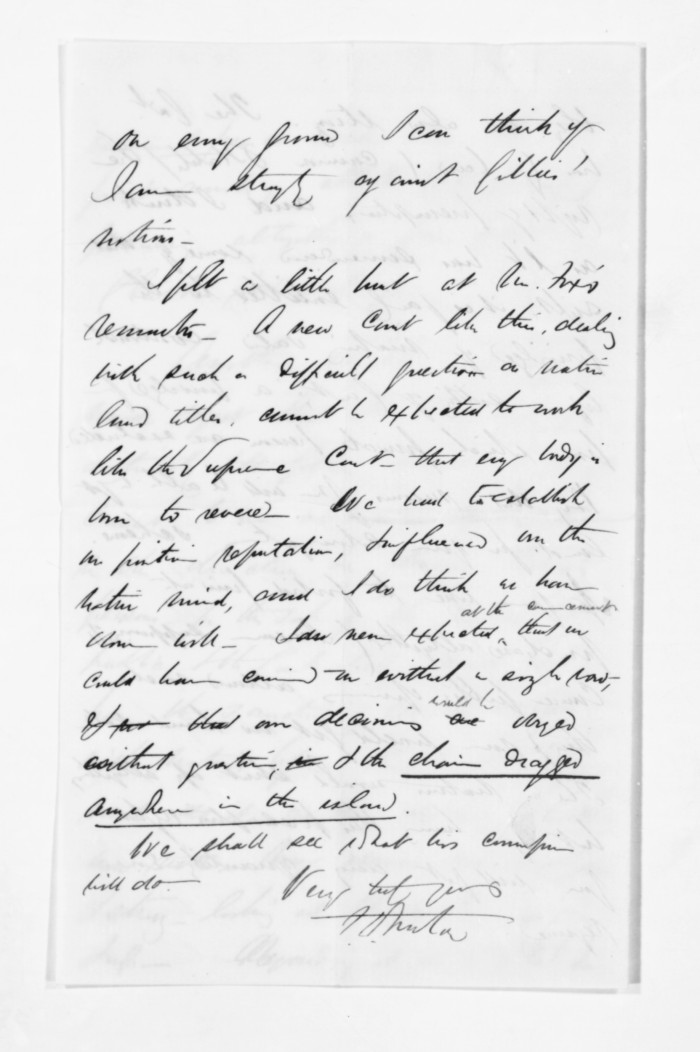 on every ground I can think of
I am strongly against Gillies'
notions —
I felt a little hurt at Mr. Fox's
remarks — A new Court like this, dealing
with such a difficult question as native
land titles, cannot be expected to work
like the Supreme Court — that every body is
born to revere — We had to establish
our position reputation, & influence over the
native mind, and I do think we have
done well — I never expected, at the commencement that we
could have carried on without a single row,
our decisions would be obeyed
without question, & the chain dragged
anywhere in the island.
We shall see what his commission
will do —
Very truly yours